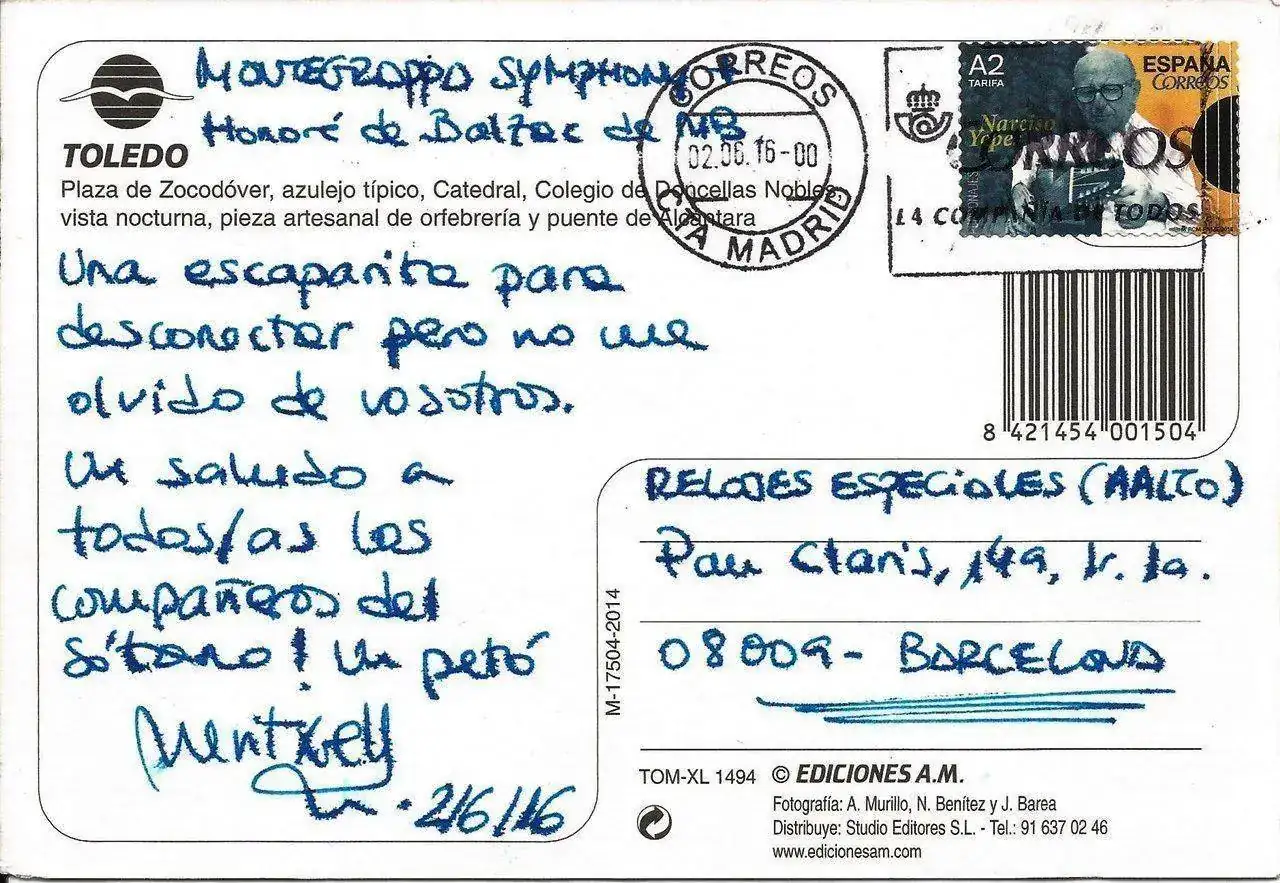 MONTEGRAPPA SYMPHONY
Honoré de Balzac de MB
TOLEDO
Plaza de Zocodóver, azulejo típico, Catedral, Colegio de Doncellas Nobles,
vista nocturna, pieza artesanal de orfebrería y puente de Alcántara
Una escaparita para
desconectar pero no me
olvido de vosotros.
Un saludo a
todos/as los
compañeros del
sótano! Un petó
Meritxell
2/6/16
CORREOS
02.06.16-00
CTA MADRID
A2
TARIFA
ESPAÑA
CORREOS
Narciso
Yepes
CORREOS
LA COMPAÑIA DE TODOS
8 421454 001504
RELOJES ESPECIALES (AALTO)
Pau Claris, 149, 1r. 1a.
08009 - BARCELONA
M-17504-2014
TOM-XL 1494 © EDICIONES A.M.
Fotografía: A. Murillo, N. Benítez y J. Barea
Distribuye: Studio Editores S.L. - Tel.: 91 637 02 46
www.edicionesam.com